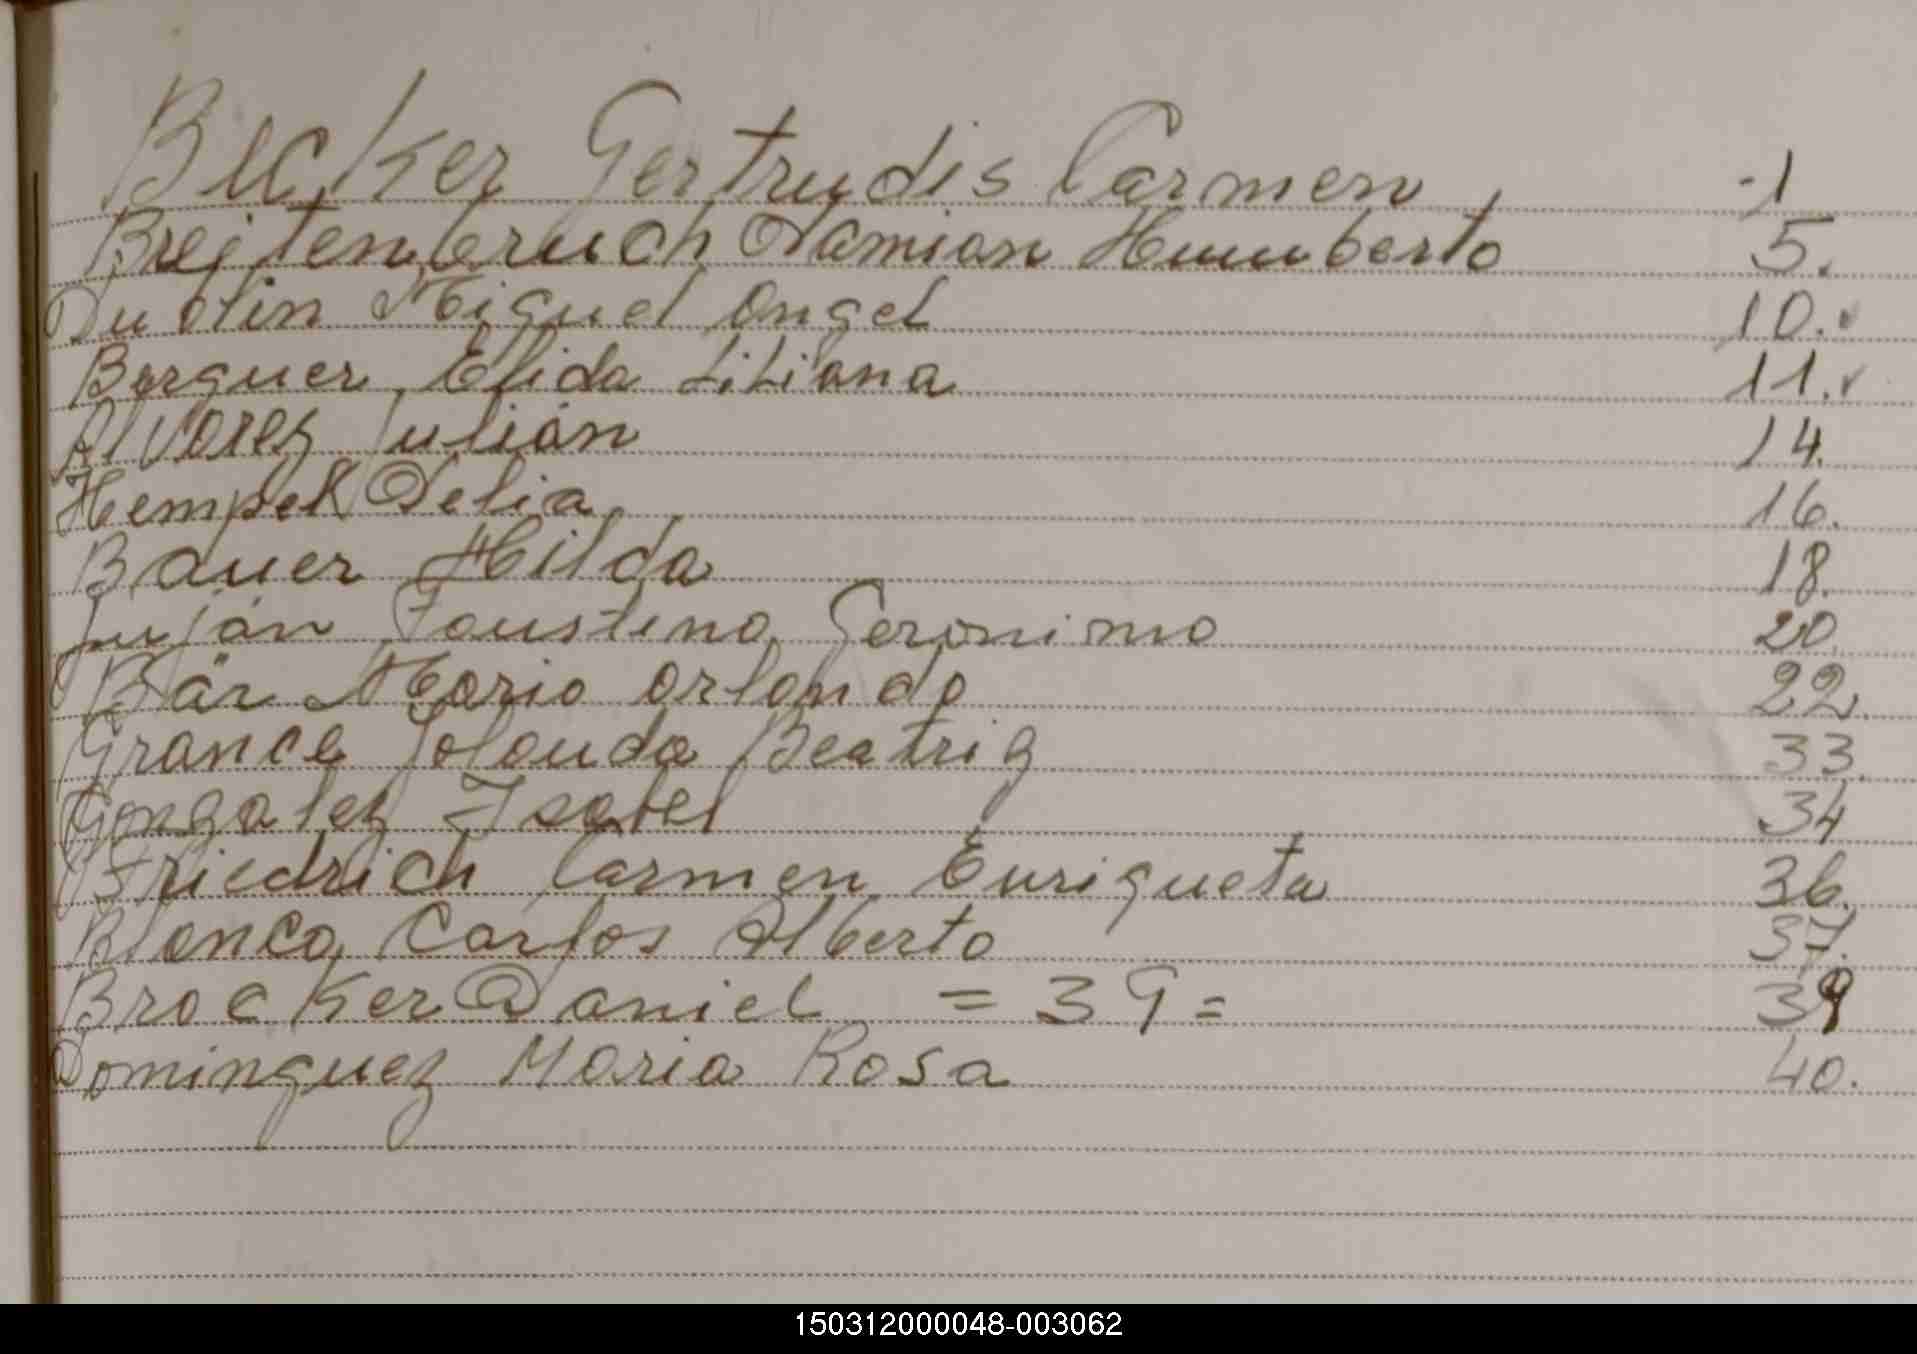 Becker Gertrudis Carmen -1
Breitenbruch Damian Humberto 5.
Duolin Miguel Angel 10.
Berguer Elida Liliana 11.
Alvarez Julián 14.
Hempel Delia 16.
Bauer Hilda 18.
Juján Faustino Geronimo 20.
Bär Mario Orlando 22.
Grance Jolanda Beatriz 33.
Gonzalez Isabel 34
Friedrich Carmen Enriqueta 36.
Blanco Carlos Alberto 37.
Brocker Daniel = 39 = 39
Dominguez Maria Rosa 40.
150312000048-003062